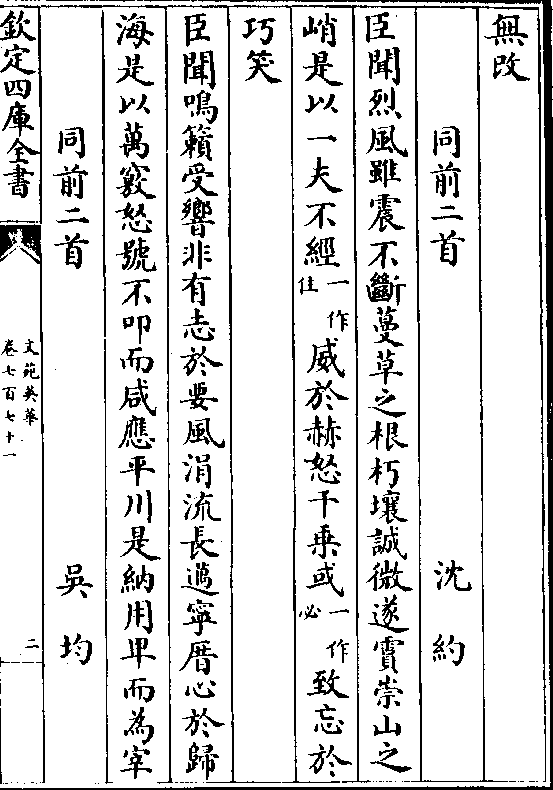 無改
同前二首　沈約
臣聞烈風雖震不斷蔓草之根朽壤誠微遂霣崇山之
峭是以一夫不經一作住威於赫怒千乗或一作必致忘於
巧笑
臣聞鳴籟受響非有志於要風涓流長邁寧厝心於歸
海是以萬竅怒號不叩而咸應平川是納用卑而為宰
同前二首　吳均
欽定四庫全書
文苑英華
卷七百七十一
二